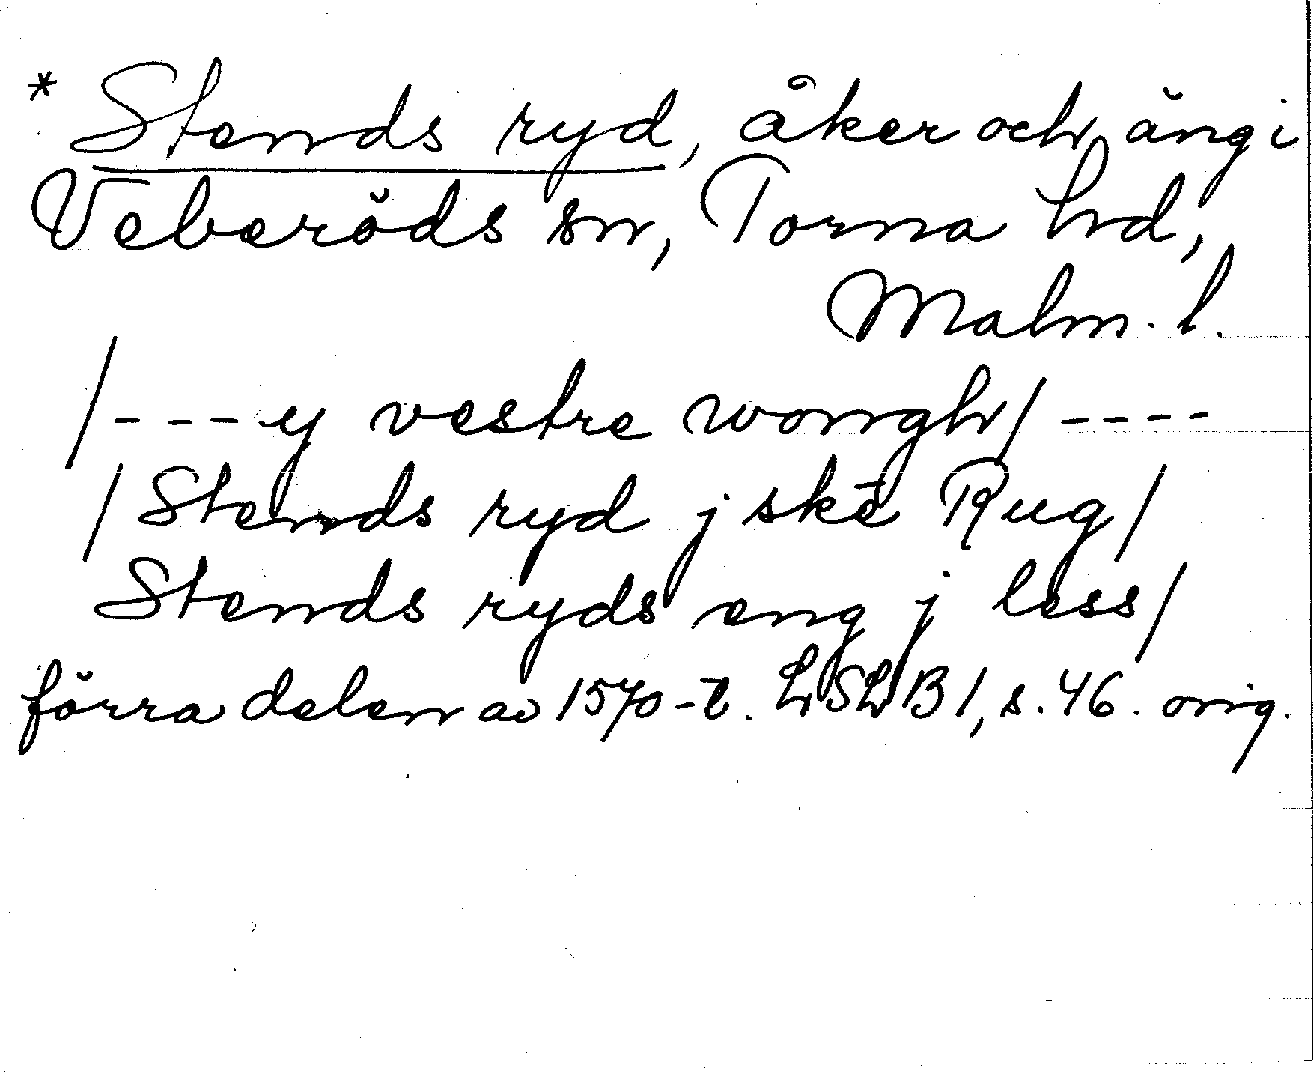 * Stends ryd, åker och äng i
Veberöds sn, Torna hd,
Malm. l.
/- - - y vestre wongh/ - - - -
/Stends ryd j skē Rug/
Stends ryds eng jless/
förra delen av 1570-t. LSLB 1, s. 46. orig.